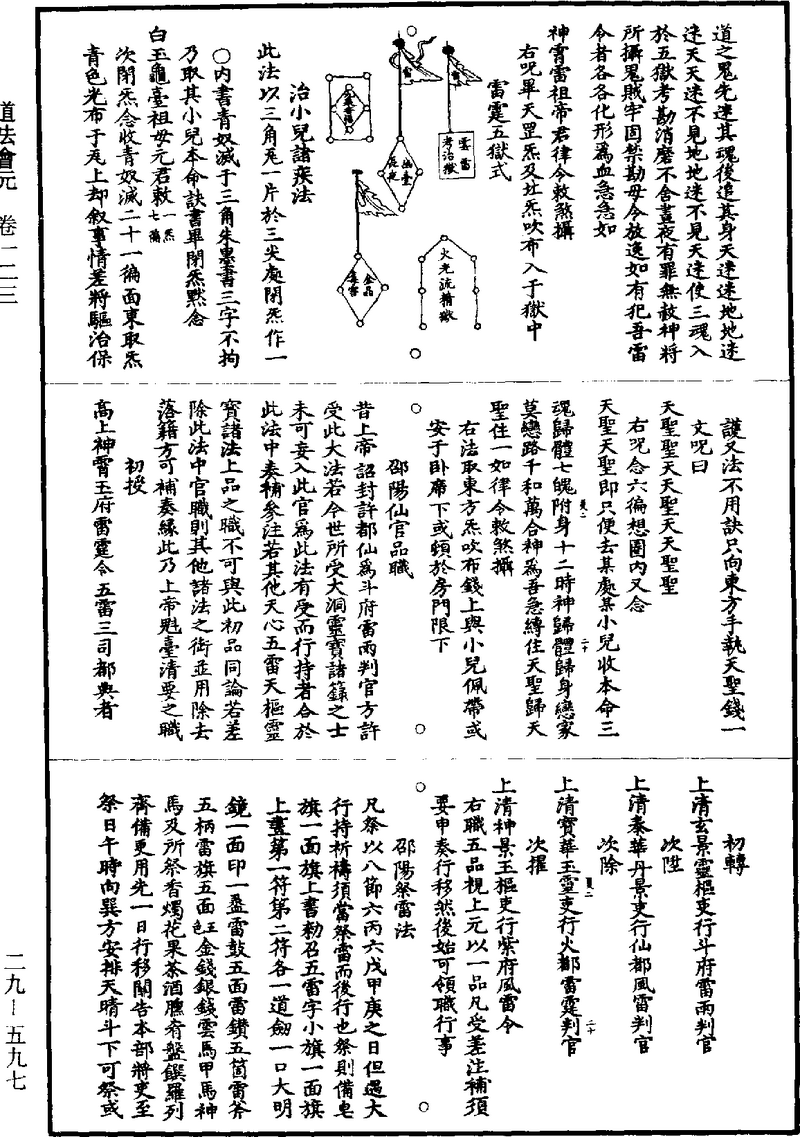 道法會元　卷一二三
道之鬼先迷其魂後追其身天迷迷地地迷
迷天天迷不見地地迷不見天達使三魂入
於五獄考勘消磨不舍晝夜有罪無赦神將
所攝鬼賊牢固禁勘毋令放逸如有犯吾雷
令者各各化形為血急急如
神霄雷祖帝君律令敕煞攝
右呪畢天罡炁及炁吹布入于獄中
雷霆五獄式
雷
雷
雲雷考治獄
火光流精獄
治小兒諸疾法
此法以三角瓦一片於三尖處閉炁作一
○內書青奴滅于三角朱墨書三字不拘
乃取其小兒本命訣書畢閉炁默念
白玉龜臺祖母元君敕一炁七遍
次閉炁念收青奴滅二十一徧面東取炁
青色光布于瓦上却叙事情差將驅治保
護又法不用訣只向東方手執天聖錢一
文呪曰
天聖聖天天聖天天聖聖
右呪念六徧想圈內又念
天聖天聖即只便去某處某小兒收本命三
魂歸體七魄附身十二時神歸體歸身戀家
莫戀路千和萬合神為吾急縛住天聖歸天
聖住一如律令敕煞攝
右法取東方炁吹布錢上與小兒佩帶或
安于卧席下或頓於房門限下
邵陽仙官品職
昔上帝詔封許都仙為斗府雷雨判官方許
受此大法若今世所受大洞靈寶諸籙之士
未可妄入此官為此法有受而行持者合於
此法中奏補參注若其他天心五雷天樞靈
寶諸法上品之職不可與此初品同論若差
除此法中官職則其他諸法之術並用除去
落籍方可補奏緣此乃上帝魁臺清要之職
初授
高上神霄玉府雷霆令五雷三司都典者
初轉
上清玄景靈樞吏行斗府雷雨判官
次陞
上清泰華丹景吏行仙都風雷判官
次除
上清寶華玉靈吏行火都雷霆判官
次擢
上清神景玉樞吏行紫府風雷令
右職五品視上元以一品凡受差注補須
要申奏行移然後始可領職行事
邵陽祭雷法
凡祭以八節六丙六戊甲庚之日但遇大
行持祈禱須當祭雷而後行也祭則備皂
旗一面旗上書勅召五雷字小旗一面旗
上畫第一符第二符各一道劒一口大明
鏡一面印一盝雷鼓五面雷鑽五箇雷斧
五柄雷旗五面色五金錢銀錢雲馬甲馬神
馬及所祭香燭花果茶酒醮肴盤饌羅列
齊備更用先一日行移關告本部將吏至
祭日午時向巽方安排天晴斗下可祭或
二九—五九七